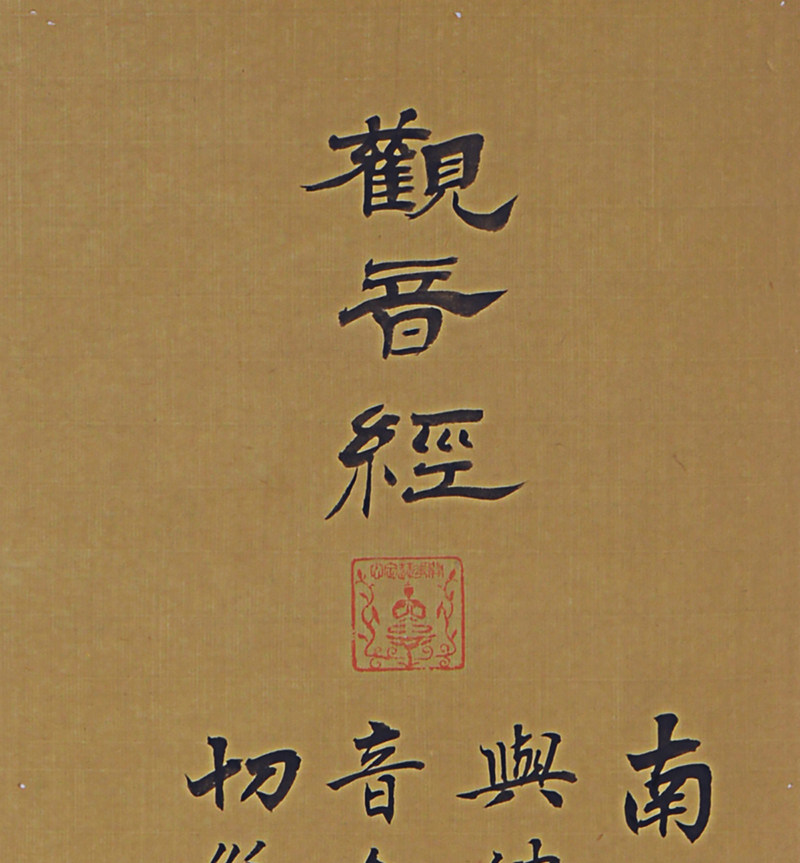 觀音經
南
與
音
切